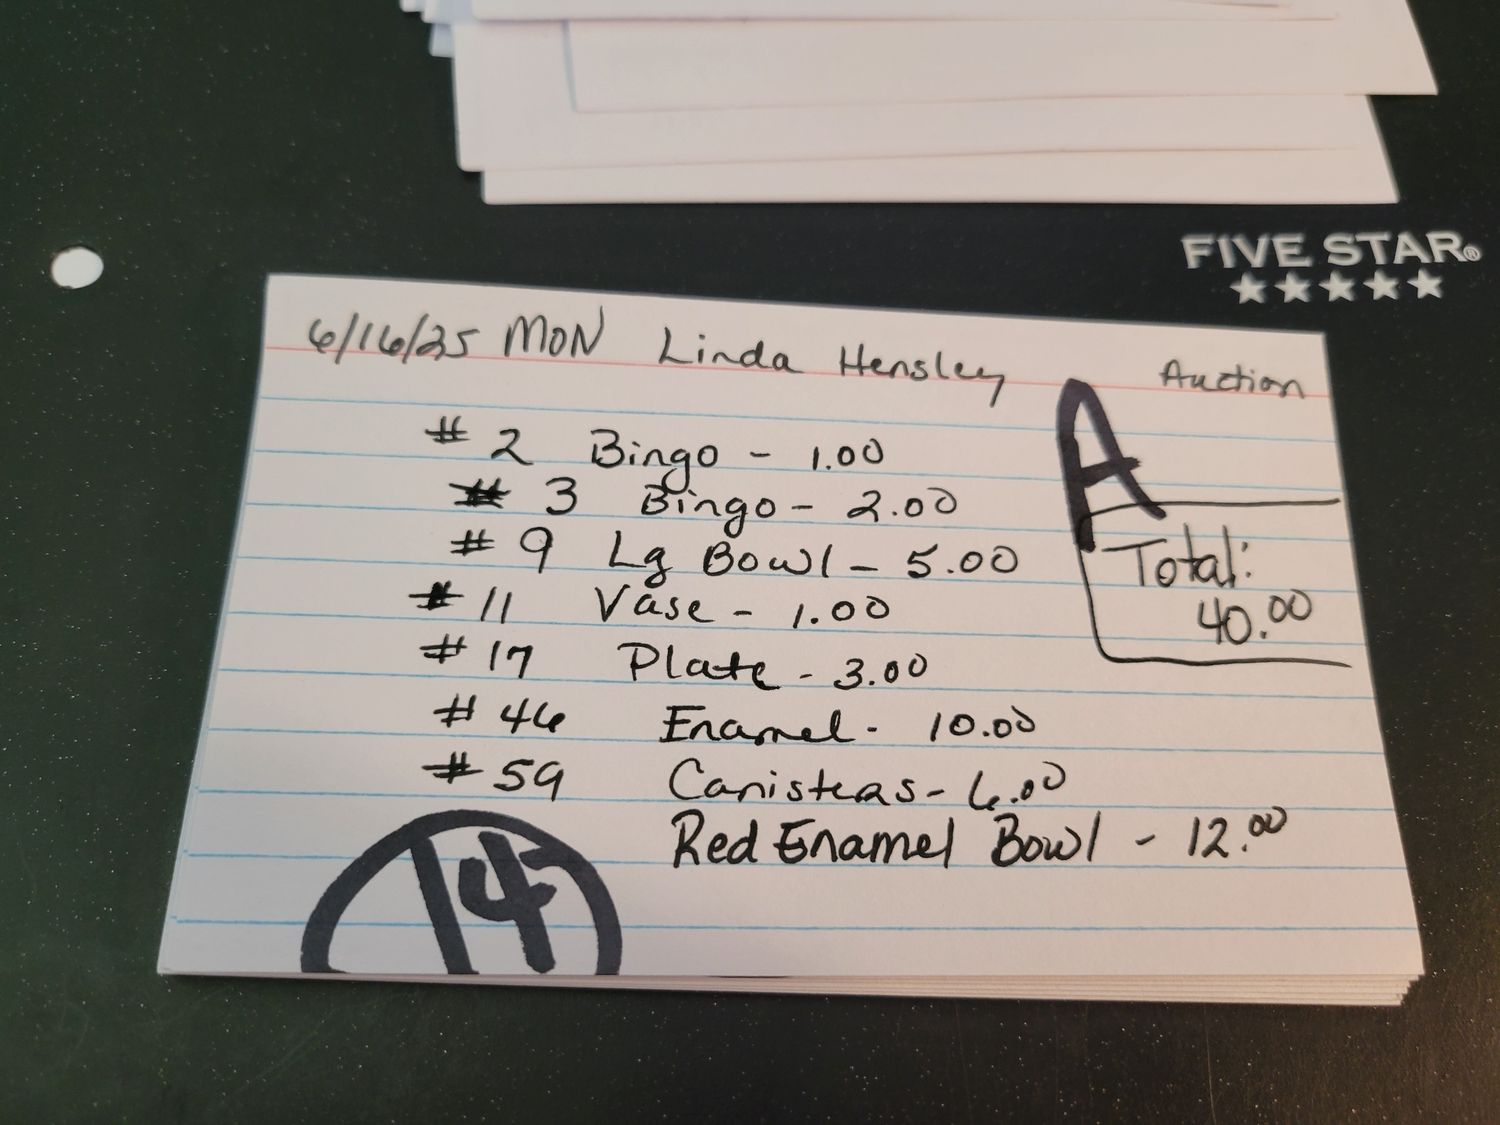 FIVE STAR®
6/16/25 MON Linda Hensley Auction
A
# 2 Bingo - 1.00
# 3 Bingo - 2.00
# 9 Lg Bowl - 5.00
# 11 Vase - 1.00
# 17 Plate - 3.00
# 46 Enamel - 10.00
# 59 Canisters - 6.00
Red Enamel Bowl - 12.00
Total:
40.00
147